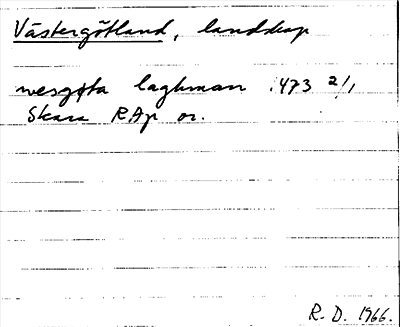 Västergötland, landskap
wesgøta laghman 1473 2/1
Skara RAp or.
R. D. 1966.